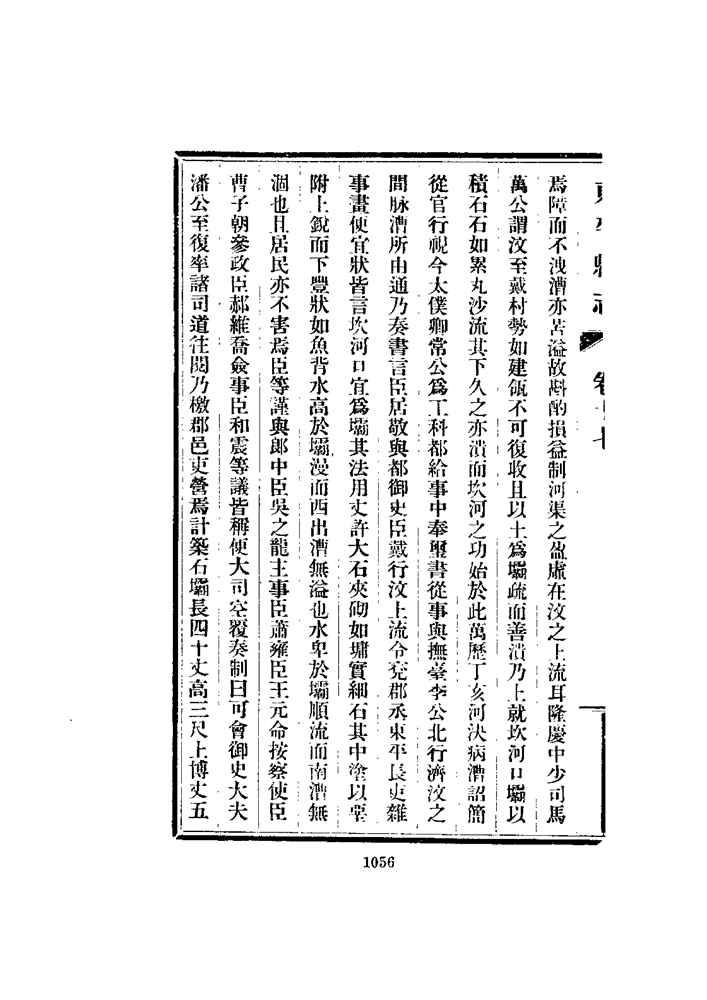 東平縣志 卷十七
焉障而不洩漕亦苦溢故斟酌損益制河渠之盈虛在汶之上流耳隆慶中少司馬
萬公謂汶至戴村勢如建瓴不可復收且以土爲壩疏而善潰乃上就坎河口壩以
積石石如累丸沙流其下久之亦潰而坎河之功始於此萬歷丁亥河決病漕詔簡
從官行視今太僕卿常公爲工科都給事中奉璽書從事與撫臺李公北行濟汶之
間脉漕所由通乃奏書言臣居敬與都御史臣戴行汶上流令兗郡丞東平長吏雜
事畫便宜狀皆言坎河口宜爲壩其法用丈許大石夾砌如墉實細石其中塗以堊
附上銳而下豐狀如魚背水高於壩漫而西出漕無溢也水卑於壩順流而南漕無
涸也且居民亦不害焉臣等謹與郎中臣吳之龍主事臣蕭雍臣王元命按察使臣
曹子朝參政臣郝維喬僉事臣和震等議皆稱便大司空覆奏制曰可會御史大夫
潘公至復率諸司道往閱乃檄郡邑吏營焉計築石壩長四十丈高三尺上博丈五
1056